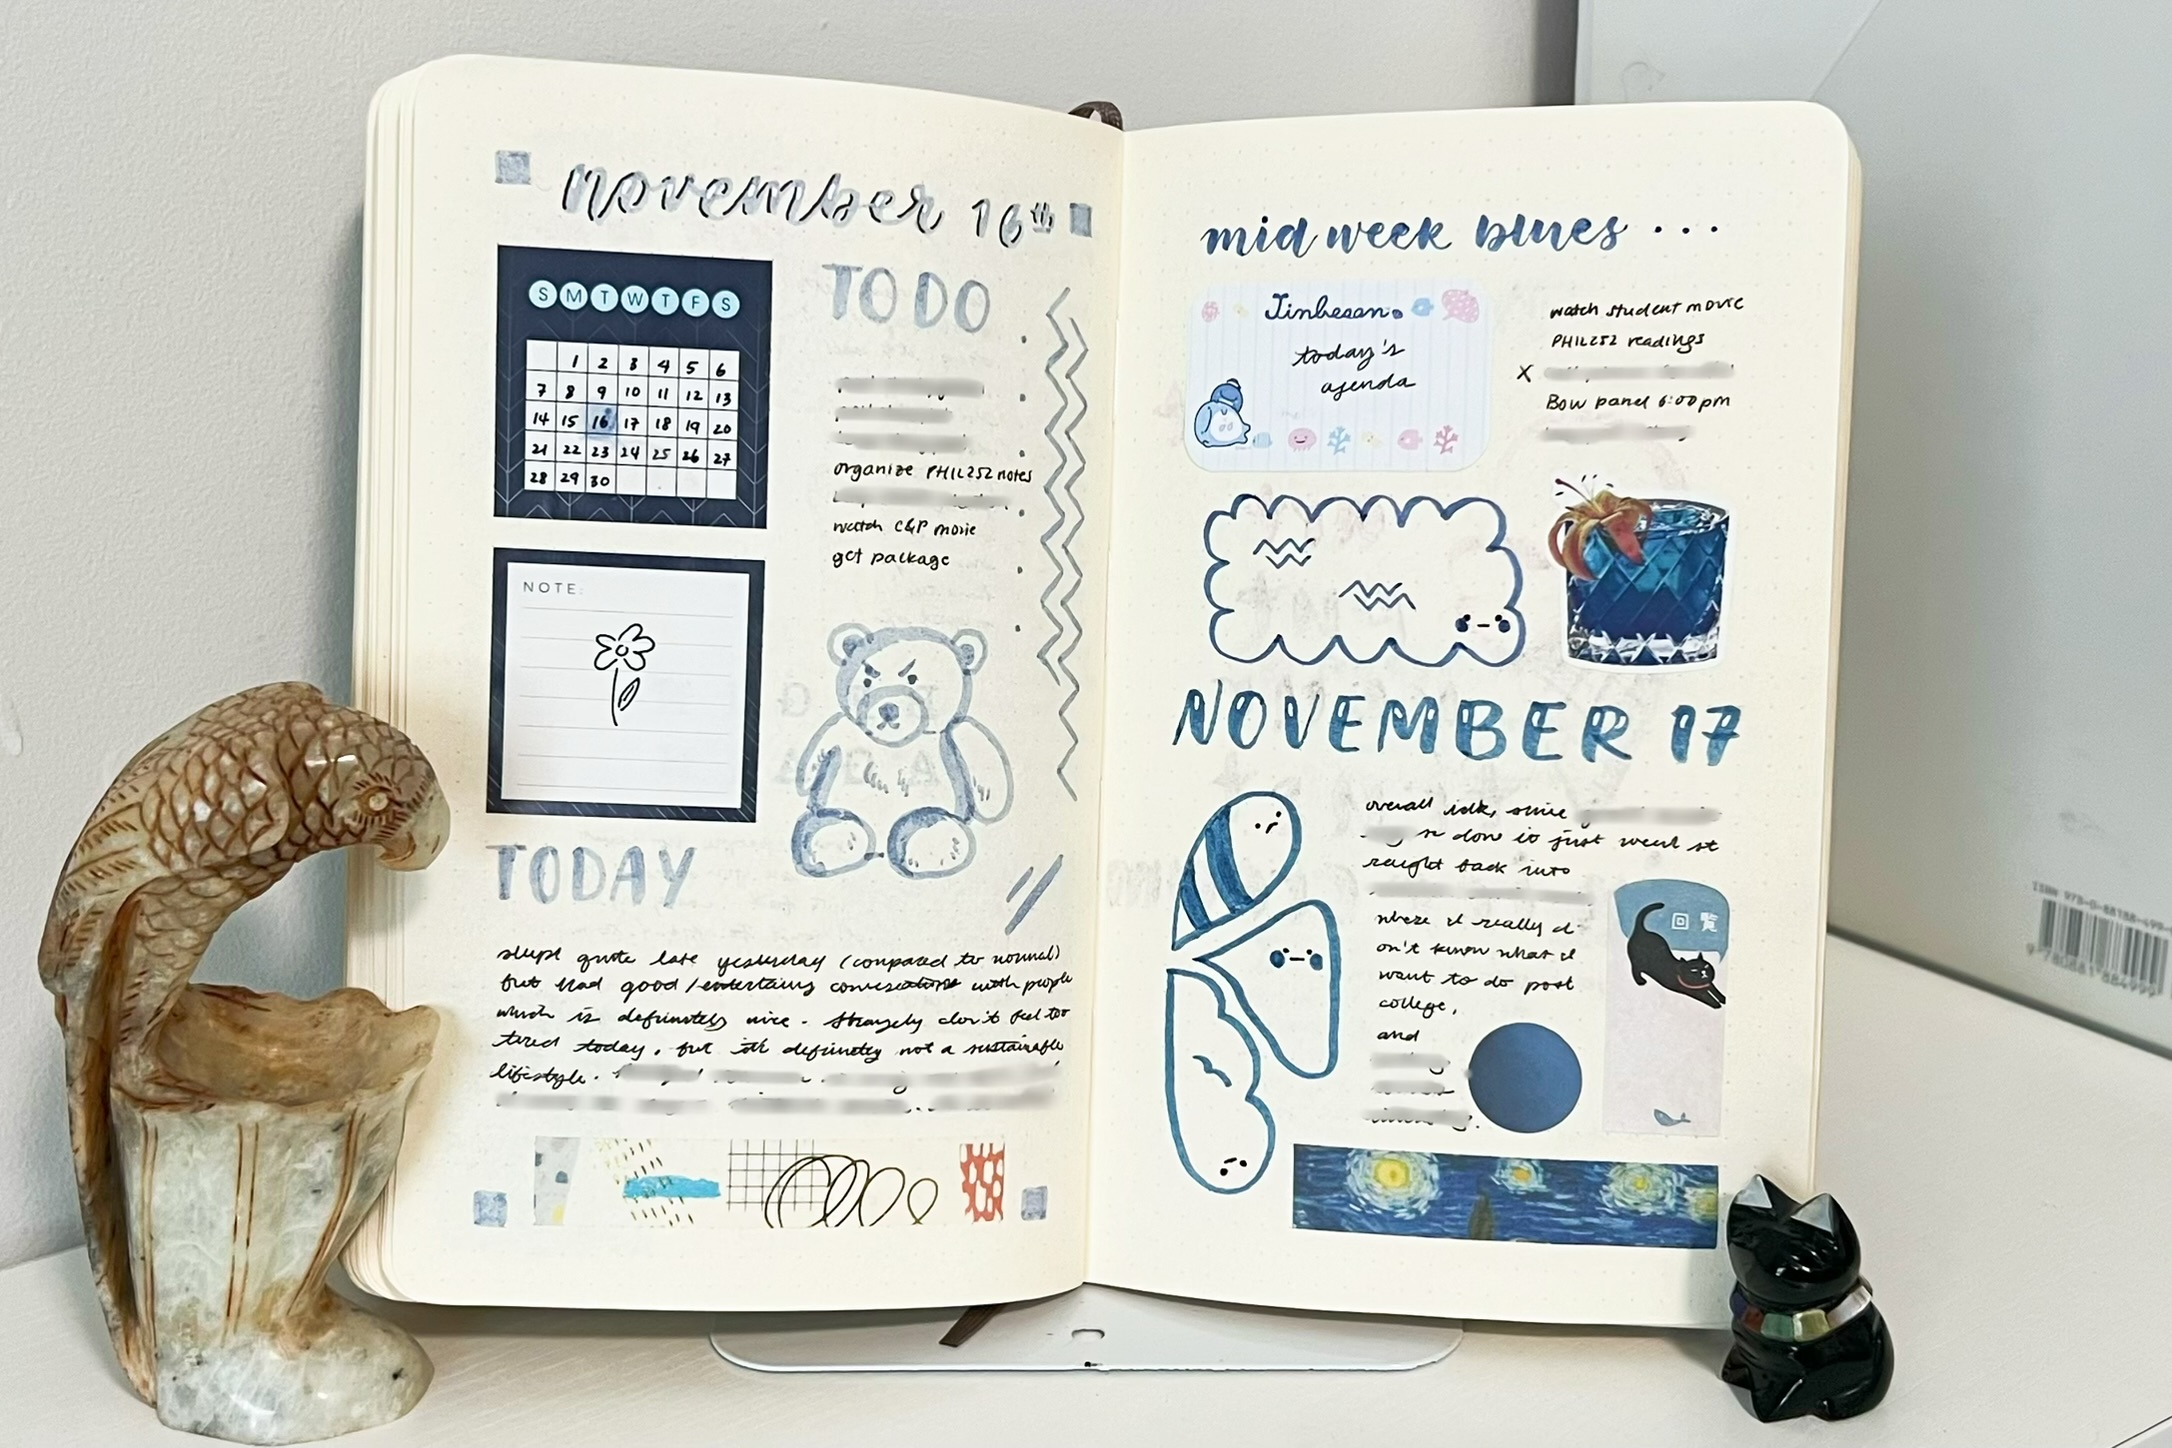 november 16th
S M T W T F S
1 2 3 4 5 6
7 8 9 10 11 12 13
14 15 16 17 18 19 20
21 22 23 24 25 26 27
28 29 30
TO DO
organize PHIL252 notes
watch C&P movie
get package
NOTE:
TODAY
slept quite late yesterday (compared to normal)
but had good / entertaining conversations with people
which is definitely nice. Strangely don't feel too
tired today, but it's definitely not a sustainable
lifestyle.
mid week blues ...
Jinbesan
today's
agenda
watch student movie
PHIL252 readings
X
Bow panel 6:00pm
NOVEMBER 17
overall idk, since
is done it just went st
raight back into
where i really d
on't know what i
want to do post
college,
and
回覧
ISBN 978-0-88188-499-
9 780881 884999